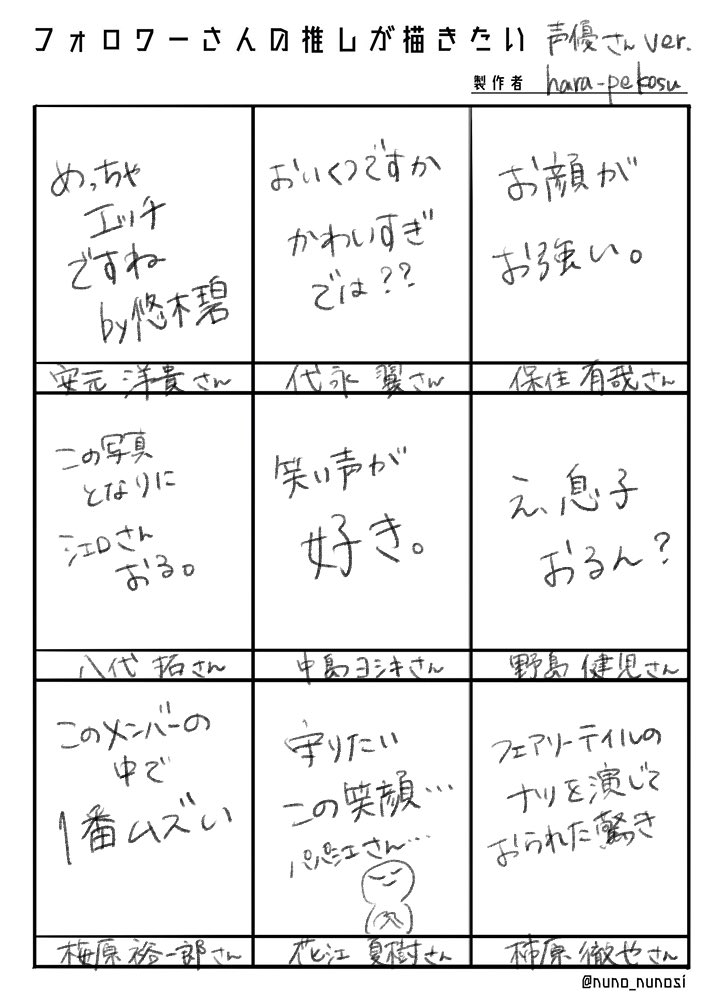 フォロワーさんの推しが描きたい 声優さんver.
製作者 hara-pekosu
めっちゃ
エッチ
ですね
by悠木碧
安元 洋貴さん
おいくつですか
かわいすぎ
では??
代永 翼さん
お顔が
お強い。
保住 有哉さん
この写真
となりに
江口さん
おる。
八代 拓さん
笑い声が
好き。
中島ヨシキさん
え、息子
おるん?
野島 健児さん
このメンバーの
中で
1番ムズい
梅原 裕一郎さん
守りたい
この笑顔…
パパ江さん…
花江 夏樹さん
フェアリーテイルの
ナツを演じて
おられた驚き
柿原 徹也さん
@nuno_nunosi